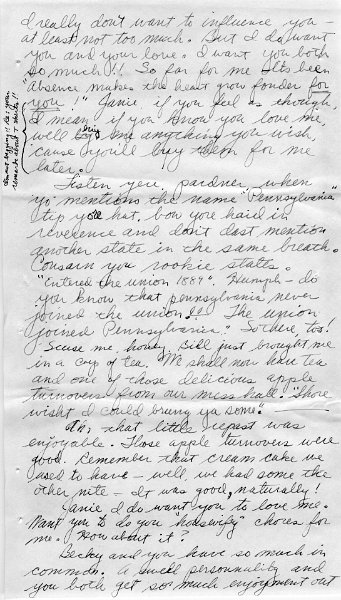 I really don't want to influence you -
at least not too much. But I do want
you and your love. I want you both
so much!! So far for me it's been
"absence makes the heart grow fonder for
you!" Janie, if you feel as though,
I mean if you know you love me,
well bring me anything you wish,
'cause you'll buy them for me
later.
Listen you, pardner, when
yo' mentions the name "Pennsylvania"
tip yore hat, bow yore haid in
reverence and don't dast mention
another state in the same breath.
Consarn you rookie states.
"Entered the union 1889". Humph - do
you know that Pennsylvania never
joined the union!!! The union
joined Pennsylvania." So there too!
Scuse me, honey, Bill just brought me
in a cup of tea. We shall now have tea
and one of those delicious apple
turnovers from our mess hall. "Shore
wisht I could brung ya some."
Ah, that little repast was
enjoyable. Those apple turnovers were
good. Remember that cream cake we
used to have - well, we had some the
other nite - It was good, naturally!
Janie I do want you to love me.
Want you to do you "housewify" chores for
me. How about it?
Becky and you have so much in
common. A swell personnality and
you both get so much enjoyment out
remarks about